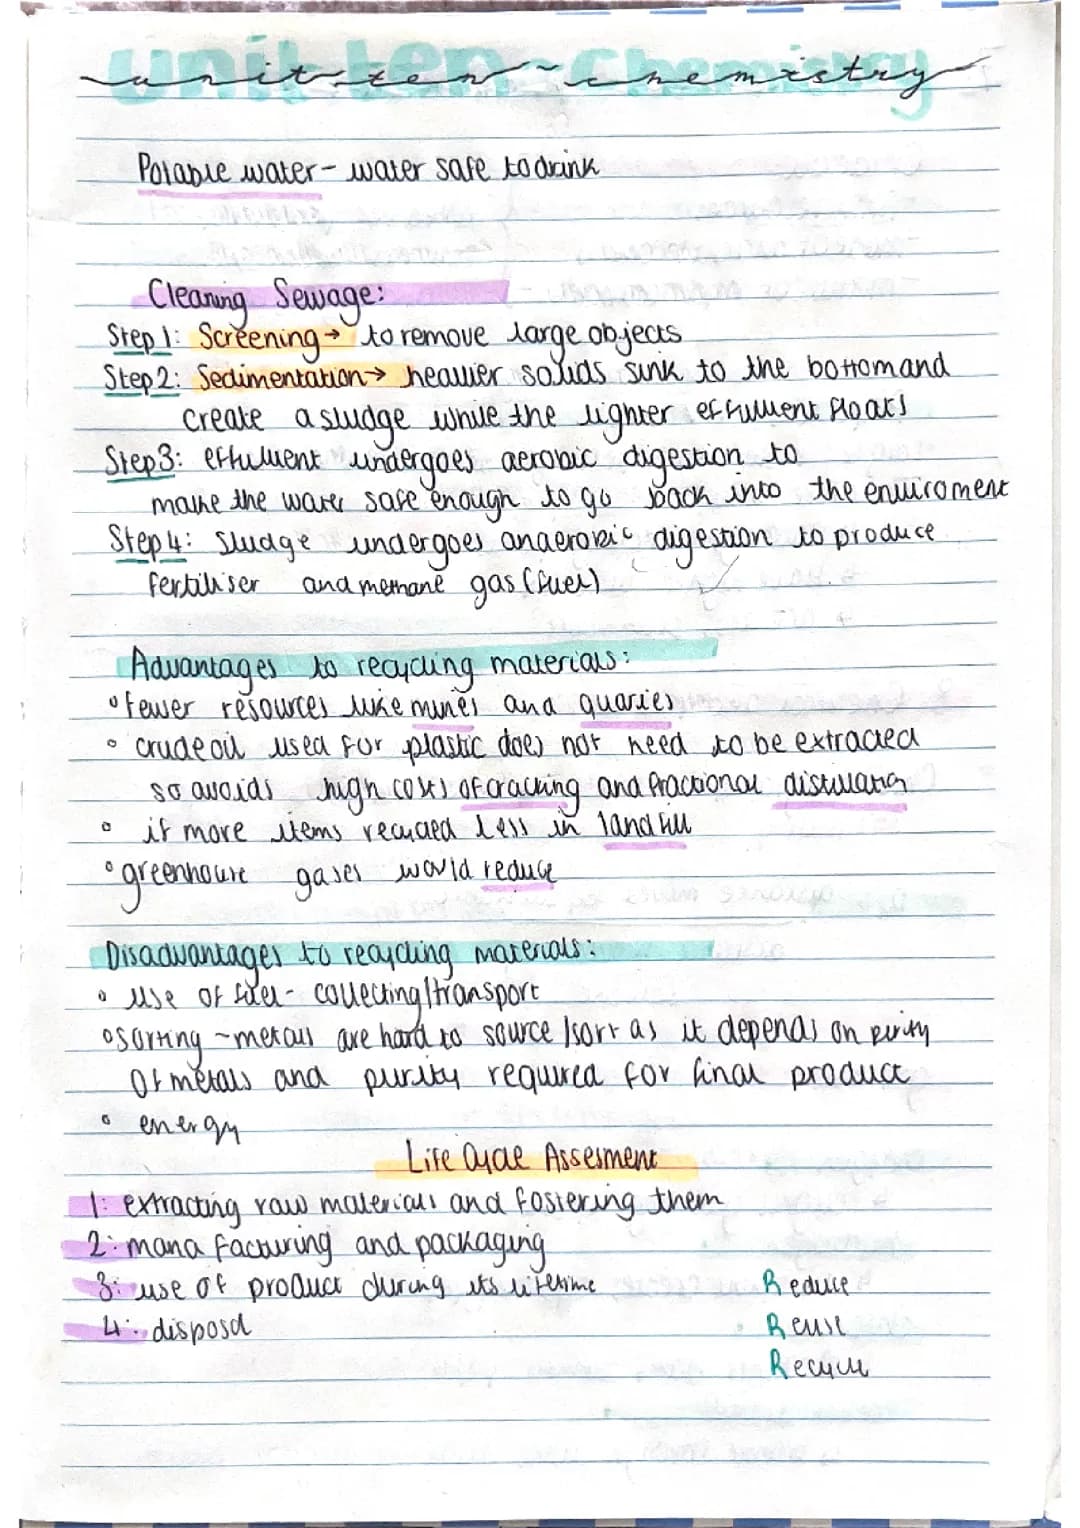 unit ten - chemistry
Potable water - water safe to drink
Cleaning Sewage:
Step 1: Screening → to remove large objects
Step 2: Sedimentation → heavier solids sink to the bottom and
create a sludge while the lighter effulment floats
Step 3: effuluent undergoes aerobic digestion to
make the water safe enough to go back into the enviroment
Step 4: Sludge undergoes anaerobic digestion to produce
fertiliser and methane gas (fuel)
Advantages to recycling materials:
° fewer resources like mines and quaries
° crude oil used for plastic does not need to be extracted
so avoids high costs of cracking and fractional distillation
° if more items recycled less in landfill
° greenhouse gases would reduce
Disadvantages to recycling materials:
° use of fuel - collecting/transport
° sorting - metals are hard to source/sort as it depends on purity
of metals and purity required for final product
° energy
Life Cycle Assesment
1: extracting raw materials and fostering them
2: manafacturing and packaging
3: use of product during its lifetime
Reduce
4: disposal
Reuse
Recycle